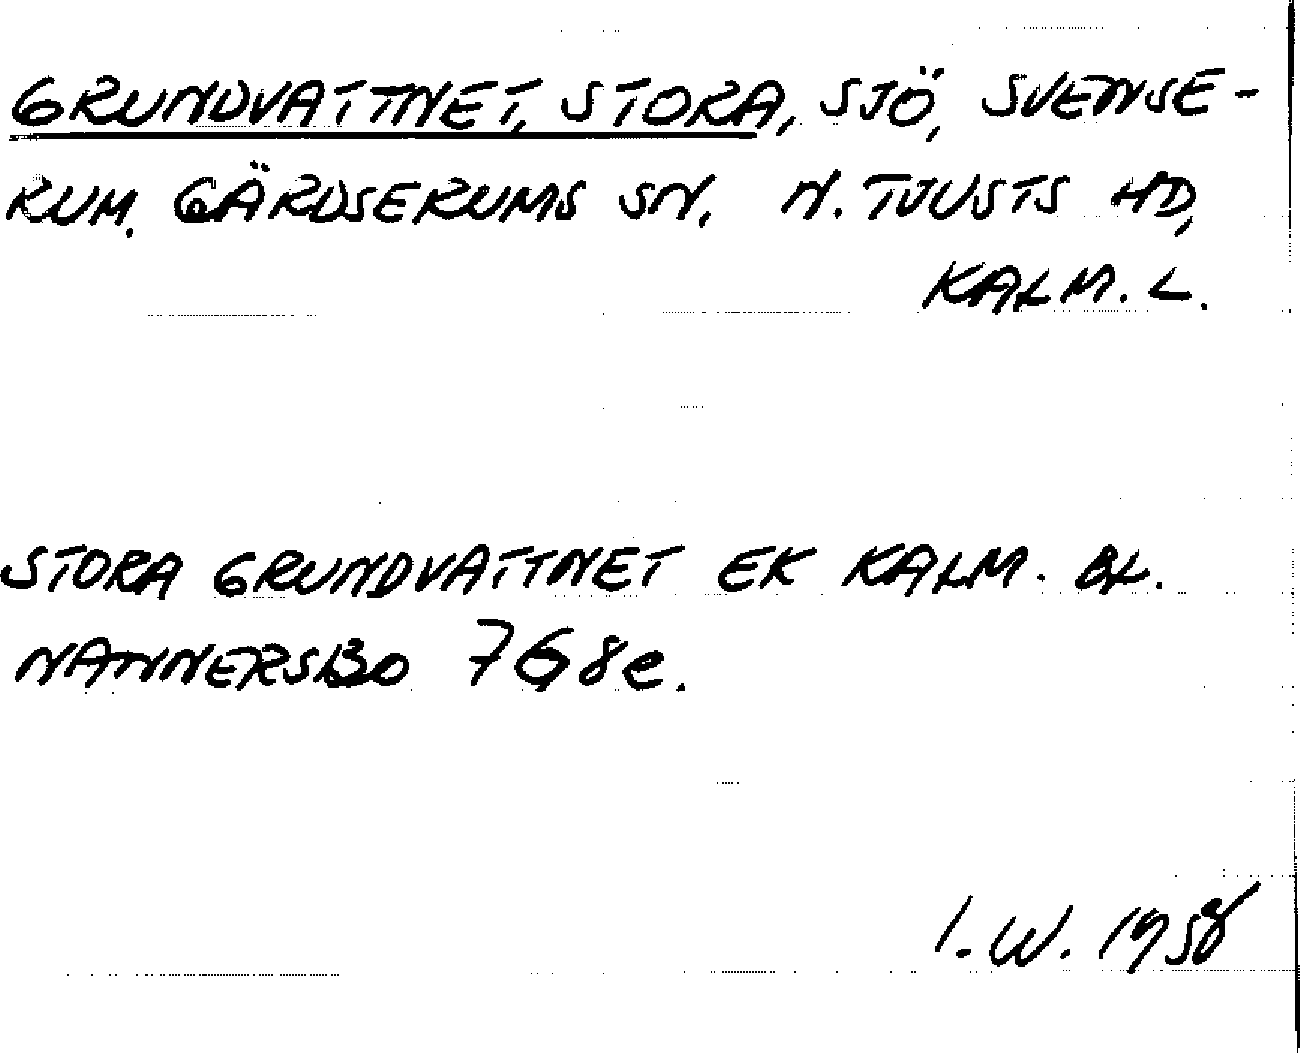 GRUNDVATTNET, STORA, SJÖ, SVENSE-
RUM. GÄRDSERUMS SN. N. TJUSTS HD,
KALM. L.
STORA GRUNDVATTNET EK KALM. BL.
NANNERSBO 7G8e.
I. W. 1958